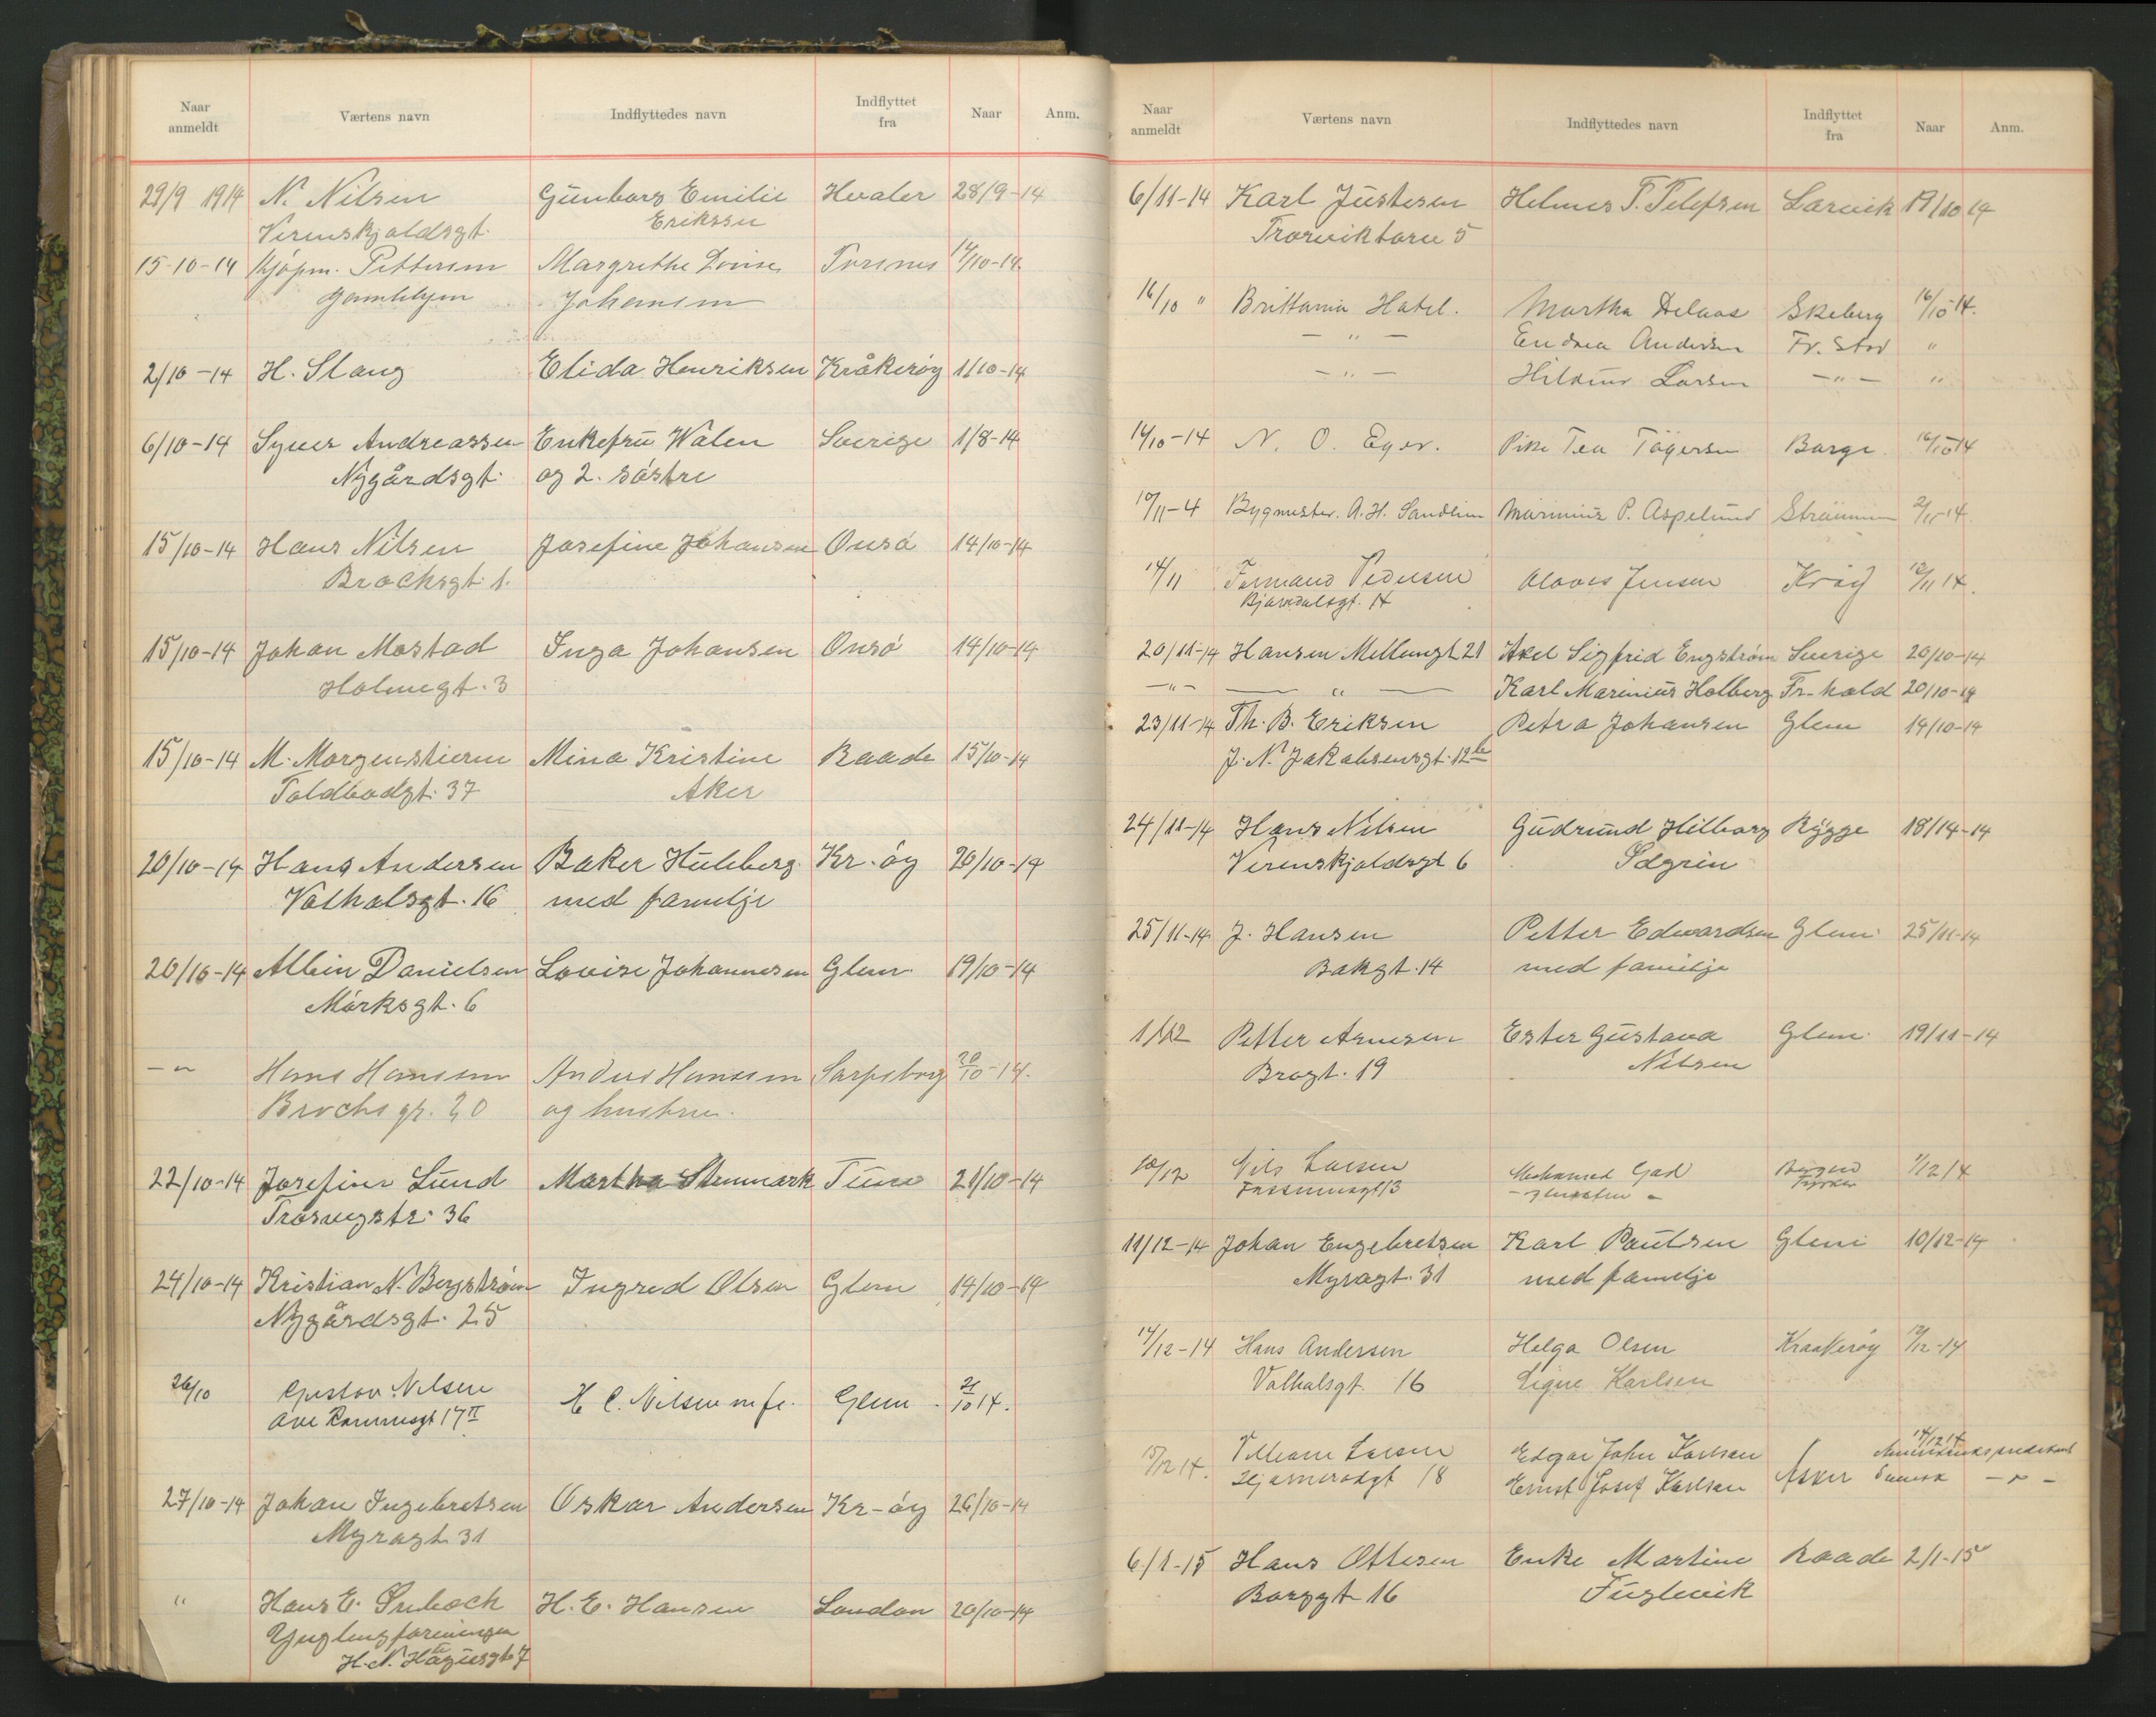 Naar anmeldt Værtens navn Indflyttedes navn Indflyttet fra Naar Anm.
29/9 1914 N. Nilsen Gunborg Emilie Hvaler 28/9-14
Verenskjoldsgt. Erikssen
15-10-14 Kjøpm. Pettersen Margrethe Lovise Torsnes 14/10-14.
Gamlebyen Johansen
2/10-14 H. Stang Elida Henriksen Kråkerøy 1/10-14
6/10-14 Syver Andreassen Enkefru Walen Sverige 1/8-14
Nygårdsgt. og 2. søstre
15/10-14 Hans Nilsen Josefine Johansen Onsø 14/10-14
Brochsgt. 1.
15/10-14 Johan Mostad Inga Johansen Onsø 14/10-14
Holmegt. 3
15/10-14 M. Morgenstierne Mina Kristine Raade 15/10-14
Toldbodgt. 37 Aker
20/10-14 Hans Andersen Baker Huleberg Kr.øy 20/10-14
Valhalsgt. 16 med familje
20/10-14 Albin Danielsen Lovise Johannesen Glem 19/10-14
Mørksgt. 6
—"— Hans Hansen Anders Hanssen Sarpsborg 20/10-14.
Brochsgt. 20 og hustru.
22/10-14 Josefine Lund Martha Stenmark Tune 21/10-14
Trosvigstr. 36
24/10-14 Kristian N. Bergstrøm Ingrid Olsen Glem 14/10-14
Nygårdsgt. 25
26/10 Gustav Nilsen H C. Nilsen m f. Glem 21/10 14.
Ove Rammsgt 17 II
27/10-14 Johan Ingebretsen Oskar Andersen Kr-øy 26/10-14
Myragt. 31
" Hans E. H. E. Hansen London 20/10-14
Ynglingforeningen
H. N. 7
Naar anmeldt Værtens navn Indflyttedes navn Indflyttet fra Naar Anm.
6/11-14 Karl Justesen Helmer T. Larvik 19/10 14
Trosviktorv 5
16/10 " Brittania Hotel. Martha Skeberg 16/10 14.
— " — Endrea Andersen Fr. Stad "
— " — Hildur Larsen — " — "
14/10-14 N. O. Eger. Pike Tea Borge
10/11-4 Bygmester. A. H. Marinius P. Aspelund Strømmen
14/11 Formand Pedersen Olaves Jensen Krøy 12/11 14.
14
20/11-14 Hansen Mellemgt. 21 Axel Sigfrid Engstrøm Sverige 20/10-14
—"— — " — Karl Marinius Holberg Fr-hald 20/10-14
23/11-14 Th. B. Eriksen Petra Johansen Glem 14/10-14
J. N. Jakobsensgt. 12b
24/11-14 Hans Nilsen Gudrund Hilborg Rygge 18/14-14
Verenskjoldsgt 6
25/11-14 J. Hansen Petter Edwardsen Glem 25/11-14
Bakgt. 14 med familje
1/12 Petter Arnesen Ester Gustava Glem 19/11-14
Bragt. 19 Nilsen
10/12 Nils Larsen Mohamed Gad 1/12 14
13
11/12-14 Johan Engebretsen Karl Paulsen Glem 10/12-14
Myragt. 31 med familje
14/12-14 Hans Andersen Helga Olsen Kraakerøy 12/12-14
Valhalsgt. 16 Signe Karlsen
15/12 14. Larsen Edgar John Karlsen 14/12 14
18 Ernst Josef Karlsen Asker — " —
6/1-15 Hans Ottesen Enke Martine Raade 2/1-15
Borggt. 16 Fuglevik